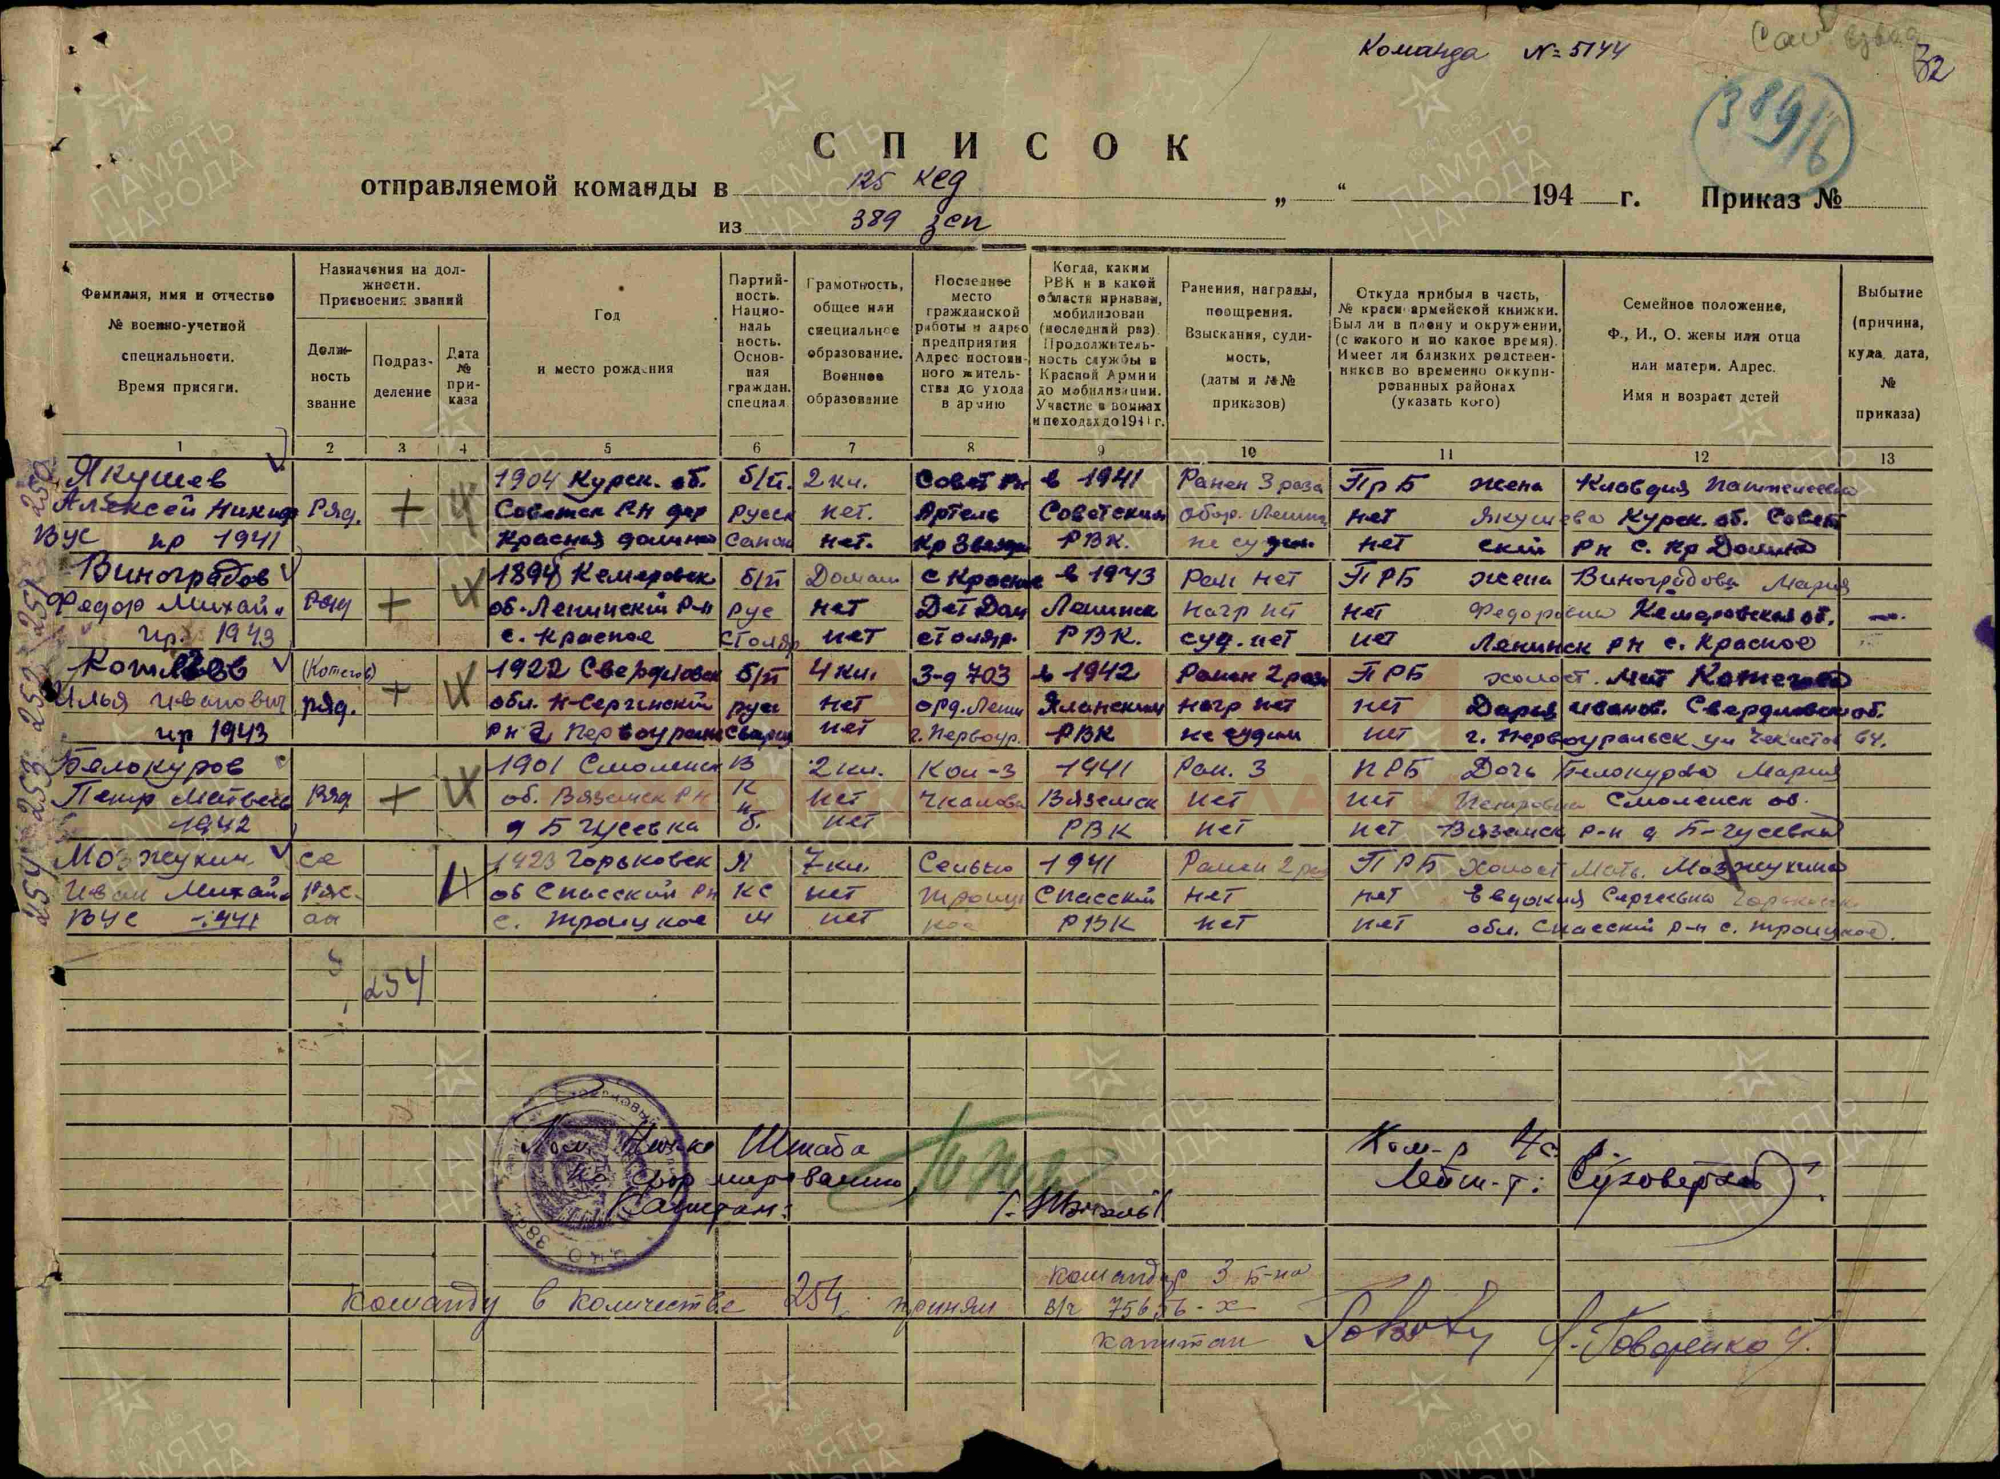 Команда № 5144
32
389/6
СПИСОК
отправляемой команды в 125 ксд „ “ 194 г. Приказ №
из 389 зсп
Фамилия, имя и отчество
№ военно-учетной
специальности.
Время присяги.
Назначения на дол-
жности.
Присвоения званий
Долж-
ность
звание
Подраз-
деление
Дата
№
при-
каза
Год
и место рождения
Партий-
ность.
Нацио-
наль
ность.
Основ-
ная
граждан.
специал.
Грамотность,
общее или
специальное
образование.
Военное
образование
Последнее
место
гражданской
работы и адрес
предприятия
Адрес постоян-
ного житель-
ства до ухода
в армию
Когда, каким
РВК и в какой
области призван,
мобилизован
(последний раз).
Продолжитель-
ность службы в
Красной Армии
до мобилизации.
Участие в войнах
и походах до 1941 г.
Ранения, награды,
поощрения.
Взыскания, суди-
мость,
(даты и №№
приказов)
Откуда прибыл в часть,
№ красноармейской книжки.
Был ли в плену и окружении,
(с какого и по какое время).
Имеет ли близких родствен-
ников во временно оккупи-
рованных районах
(указать кого)
Семейное положение,
Ф., И., О. жены или отца
или матери. Адрес.
Имя и возраст детей
Выбытие
(причина,
куда, дата,
№
приказа)
1 2 3 4 5 6 7 8 9 10 11 12 13
Якушев 1904 Курск. об. б/п. 2 кл. Совет рн в 1941 Ранен 3 раза ПрБ жена Клавдия
Алексей Никиф Ряд. + Советск рн дер русск нет. Артель Советским нет Якушева Курск. об. Совет
ВУС пр 1941 Красная долина нет. Кр Звезда РВК. не суд нет ский рн с. Кр Долина
Виноградов 1894 Кемеровск б/п Домаш с Красное в 1943 Ран нет ПРБ жена Виноградова Мария
Федор Михай Ряд + об. Ленинский р-н рус нет Дет Дом Ленинск нагр нет нет Федоровна Кемеровская об.
пр. 1943 с. Красное столяр нет столяр. РВК. суд. нет нет Ленинск рн с. Красное
(Котегов) 1922 Свердловск б/п 4 кл. З-д 703 в 1942 Ранен 2 раза ПРБ холост. мат Котегова
Илья Иванович ряд. + обл. Н-Сергинский русс нет орд. Лени нагр нет нет Дарья Иванов. Свердловск об.
пр 1943 рн г Первоуральск Сварщ нет г. Первоур. РВК не судим нет г. Первоуральск ул Чекистов 64.
Белокуров 1901 Смоленск В 2 кл. Кол-з 1941 Ран. 3 ПРБ Дочь Белокурова Мария
Петр Матвеев Ряд + об. Вяземск рн К нет Чкалова Вяземск нет нет Петровна Смоленск об.
1942 д Б Гусевка б. нет РВК нет нет Вяземск р-н д Б-Гусевка
Мозжухин се 1923 Горьковск Л 7 кл. Сельхо 1941 Ранен 2 раз ПРБ холост Мать. Мозжухина
Иван Михай об Спасский рн КС нет Троиц Спасский нет нет Евдокия Сергеевна Горьковск
ВУС 1941 с. Троицкое М нет кое РВК нет нет обл. Спасский р-н с. Троицкое.
254
Пом. Нач-ка Штаба
по формированию
Капитан:
Ком-р
Лейт-т:
Команду в количестве 254 принял
командир 3 б-на
в/ч
капитан
Говоренко